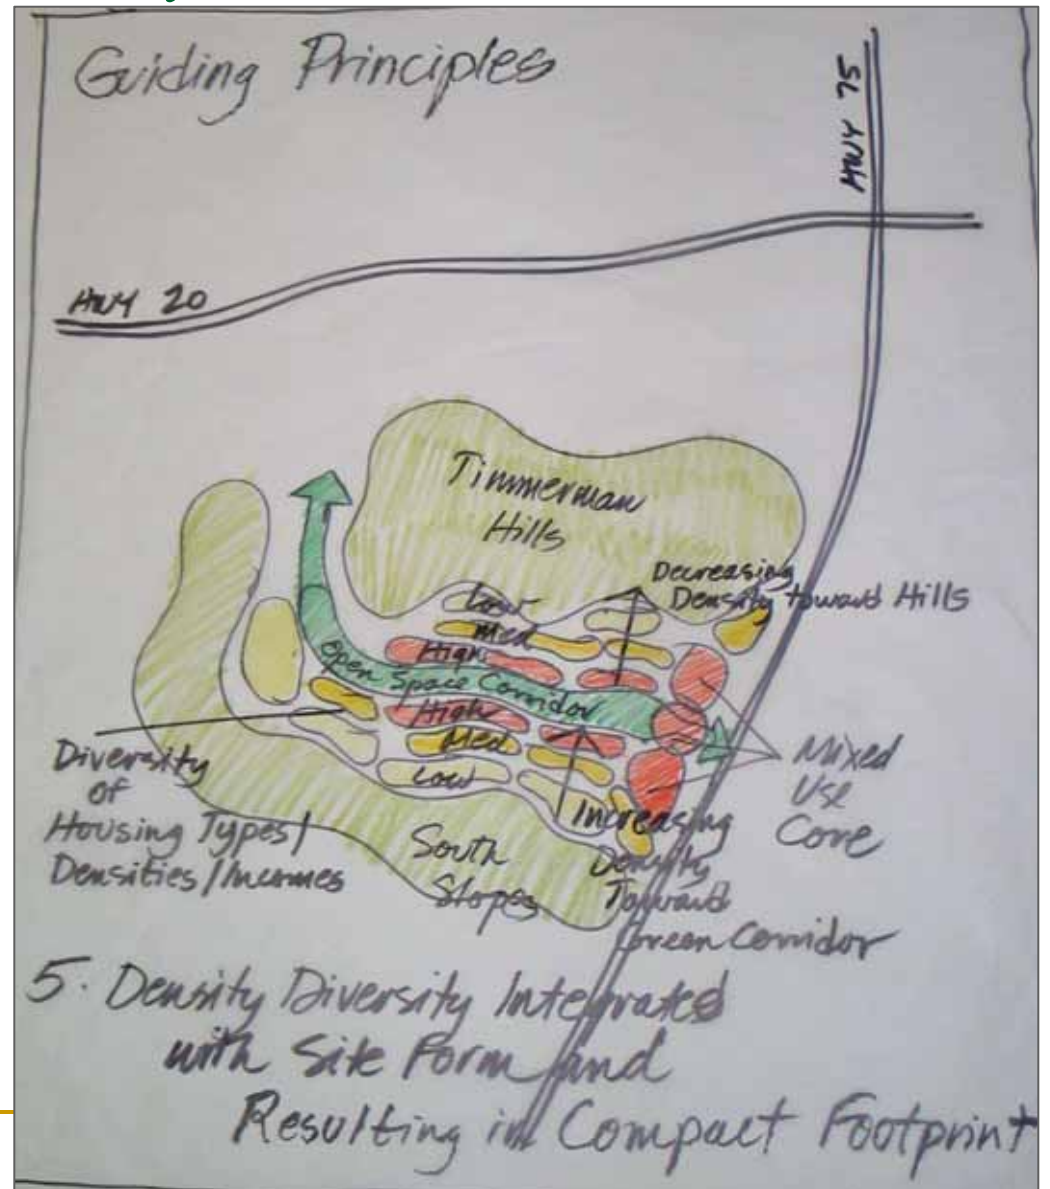 Guiding Principles
HWY 75
HWY 20
Timmerman
Hills
Decreasing
Density toward Hills
Low
Med
High
Open Space Corridor
High
Med
Low
Diversity
of
Housing Types/
Densities/Incomes
Mixed
Use
Core
Increasing
Density
Toward
Green Corridor
South
Slopes
5. Density Diversity Integrated
with Site Form and
Resulting in Compact Footprint